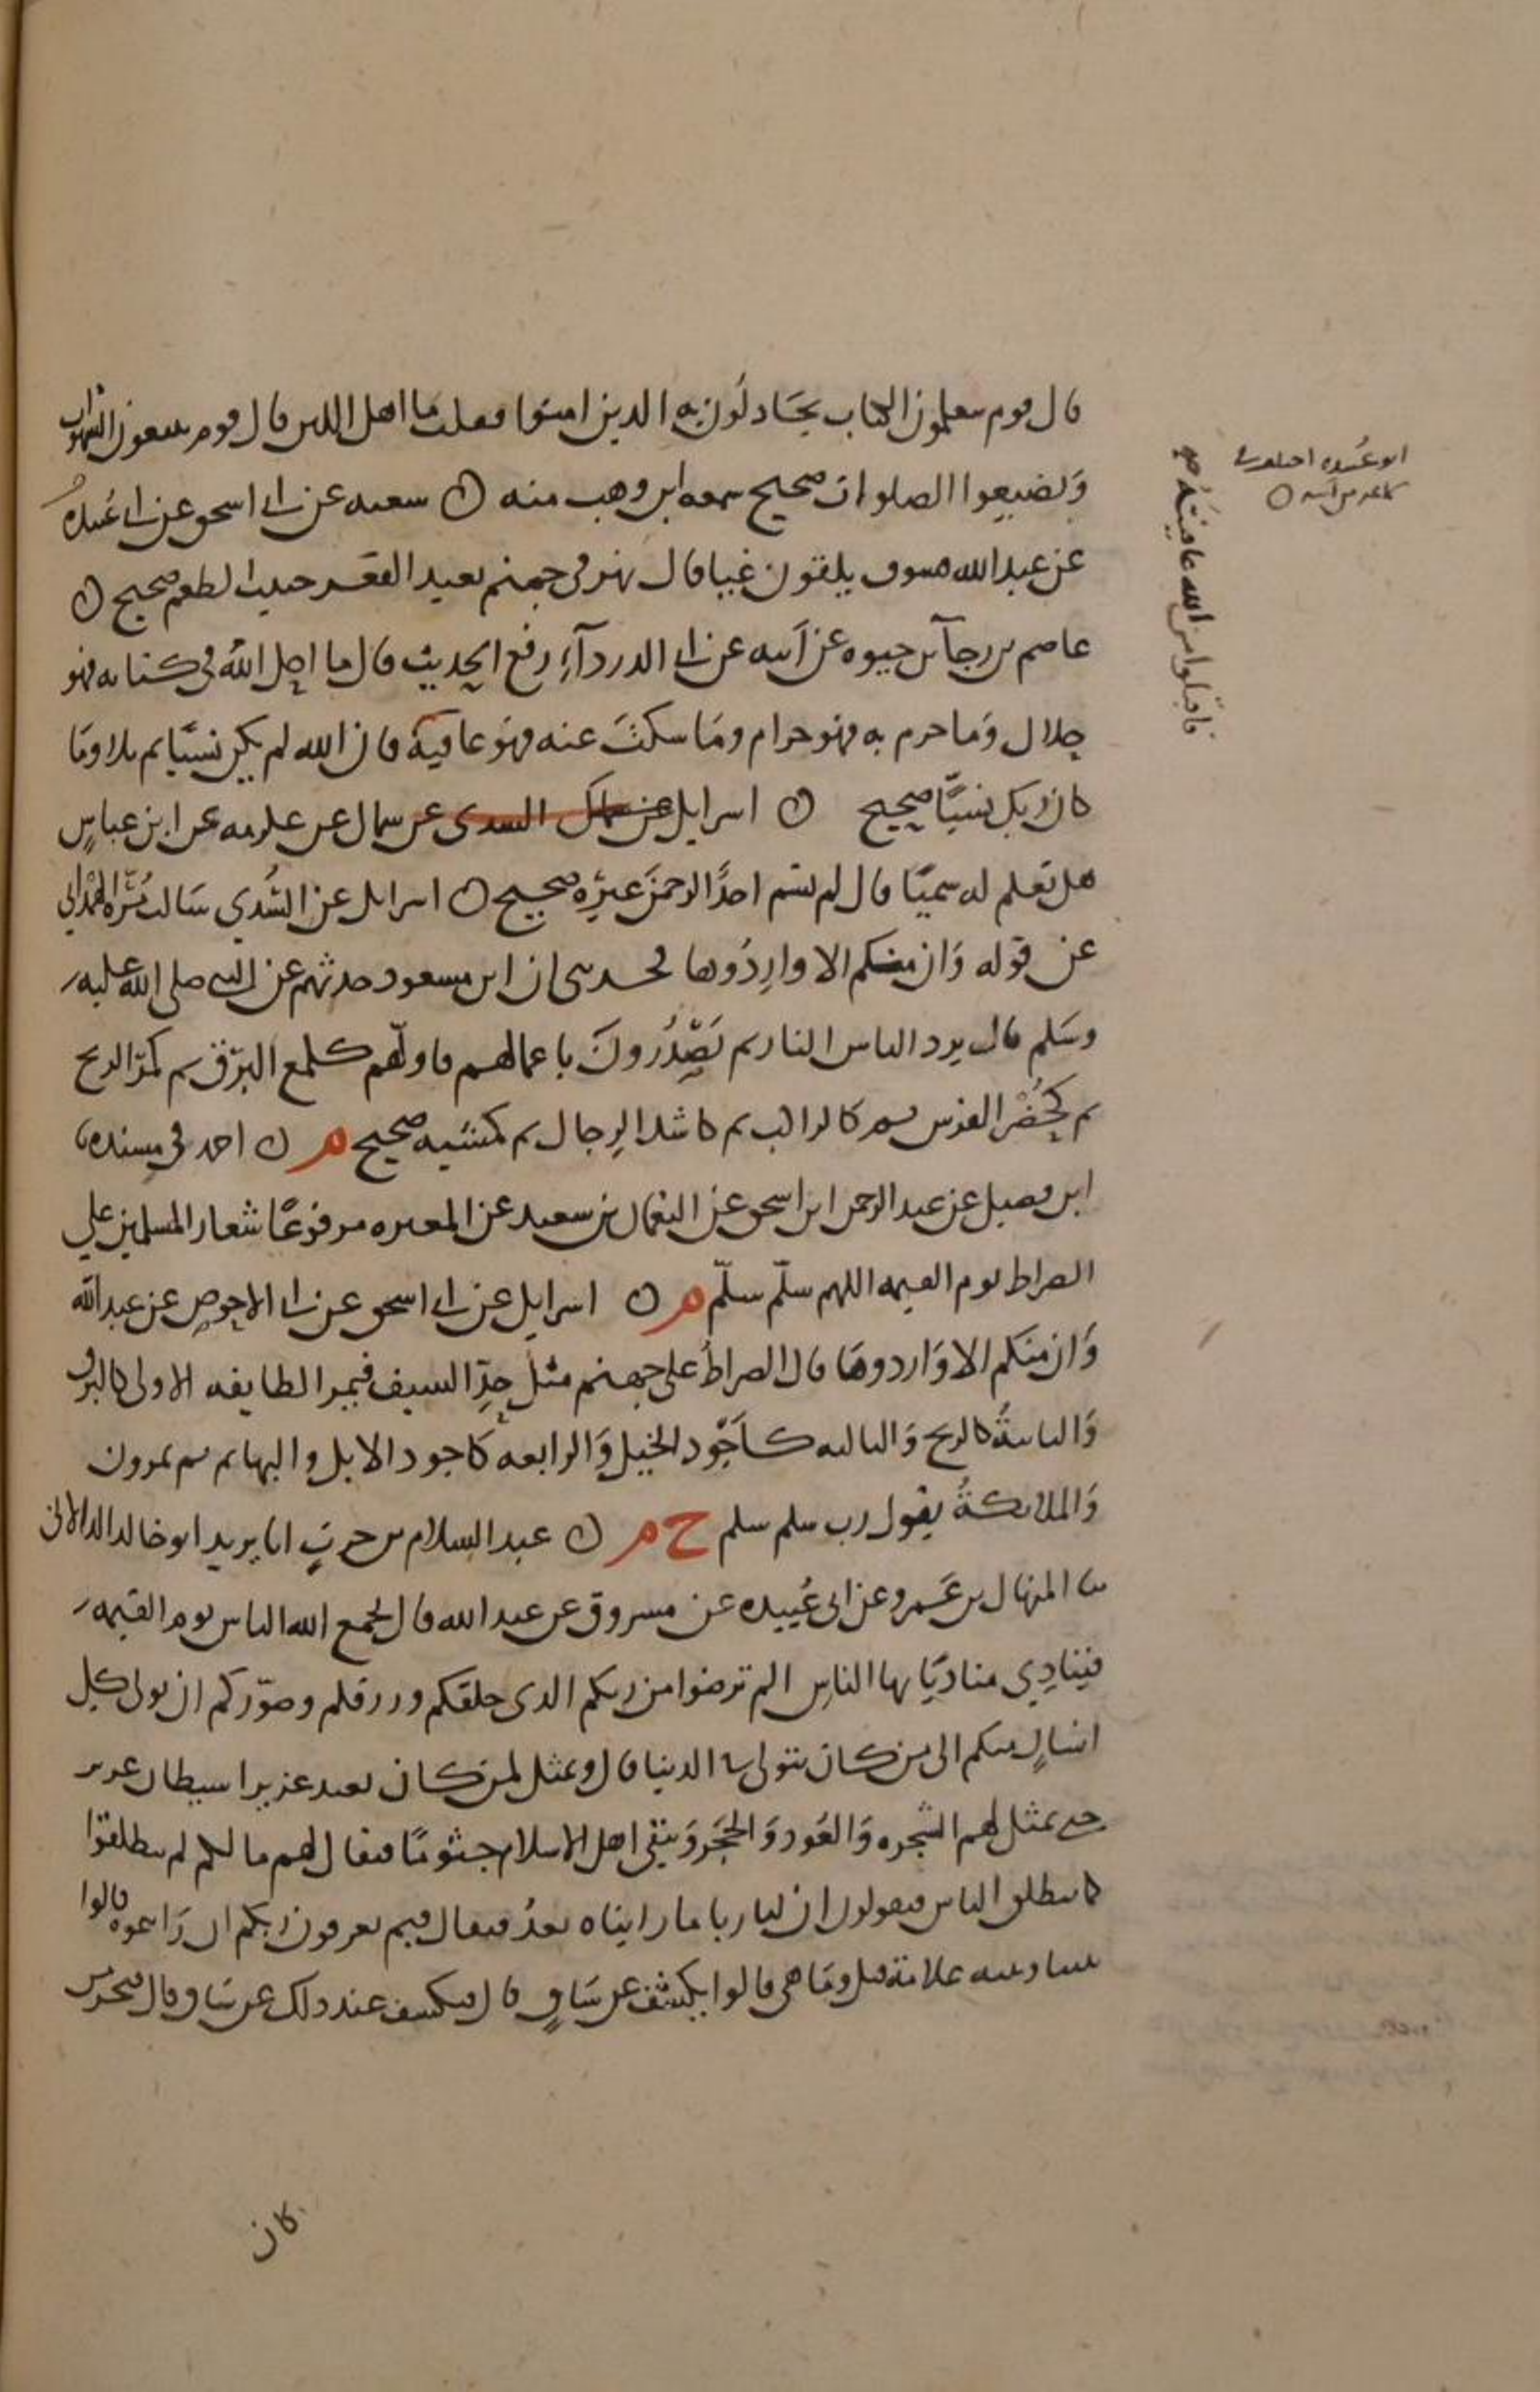 قال قوم يتعلمون الكتاب يجادلون به الذين امنوا فقلت ما اهل اللبن قال قوم يتبعون الشهوات
ويضيعوا الصلوات صحيح سمعه ابن وهب منه ن شعبة عن ابي اسحق عن ابي عبيدة
عن عبد الله فسوف يلقون غيا قال نهر في جهنم بعيد القعر خبيث الطعم صحيح ن
عاصم بن رجآ بن حيوه عن أبيه عن ابي الدردآء رفع الحديث قال ما احل الله في كتابه فهو
حلال وَما حرم به فهو حرام ومَا سكتَ عنه فهوَ عافية فان الله لم يكن نسيًا ثم تلا ومَا
كان ربك نسيًّا صحيح ن اسرايل عن سماك السدى عن سماك عن عكرمه عن ابن عباسٍ
هل تعلم له سميًا قال لم يسم احدًا الرحمنَ غيرُه صحيح ن اسرايل عن السُّدي سَالت مُرَّة الهمْداني
عن قوله وَان منكم الا وارِدُوها فحدثني ان ابن مسعود حدثهم عن النبي صلى الله عليه
وسَلم قال يرد الناس النار ثم يَصْدُرونَ باعمالهم فاولّهم كلمع البرْق ثم كمرّ الريح
ثم كحُضْر الفرس ثم كالراكب ثم كاشد الرجال ثم كمشيه صحيح م ن احمد في مسنده
ابن فضيل عن عبد الرحمن ابن اسحق عن النعمان بن سعيد عن المغيره مرفوعًا شعار المسلمين علي
الصراط يوم القيمه اللهم سلّم سلّم م ن اسرايل عن ابي اسحق عن ابي الاحوص عن عبد الله
وَان منكم الا وَاردوهَا قال الصراطُ على جهنم مثل حدّ السيف فيمر الطايفه الاولى كالبرق
وَالثانيةُ كالريح وَالثالثه كاَجْود الخيل وَالرابعه كاجود الابل والبهايم ثم يمرون
وَالملائكةُ يقول رب سلم سلم خ م ن عبد السلام بن حربٍ انا يزيد ابو خالد الدالاني
ثنا المنهال بن عَمرو عن ابى عُبيده عن مسروق عن عبد الله قال يجمع الله الناس يوم القيمه
فينادِي منادٍ يا يها الناس الم ترضوا من ربكم الذى خلقكم ورزقكم وصوّركم ان يولى كل
انسانٍ منكم الى من كان يتولى في الدنيا قال ويمثل لمن كان يعبد عزيرا شيطان عزير
حتى يمثل لهم الشجره وَالعُود وَالحجَر وَيبقى اهل الاسلام جثومًا فيقال لهم ما لكم لم تنطلقوا
كما ينطلق الناس فيقولون ان لنا ربا ما رايناه بعدُ فيقال فبم تعرفون ربكم ان رَايتموه قالوا
بيننا وبينه علامة قيل ومَا هى قالوا يكشف عن سَاقٍ قال فيكشف عند ذلك عن سَاق قال فيخر من
كان
فاقبلوا من الله عافيتَهُ صح
ابو عبيده اختلف في
سماعه من أبيه ن